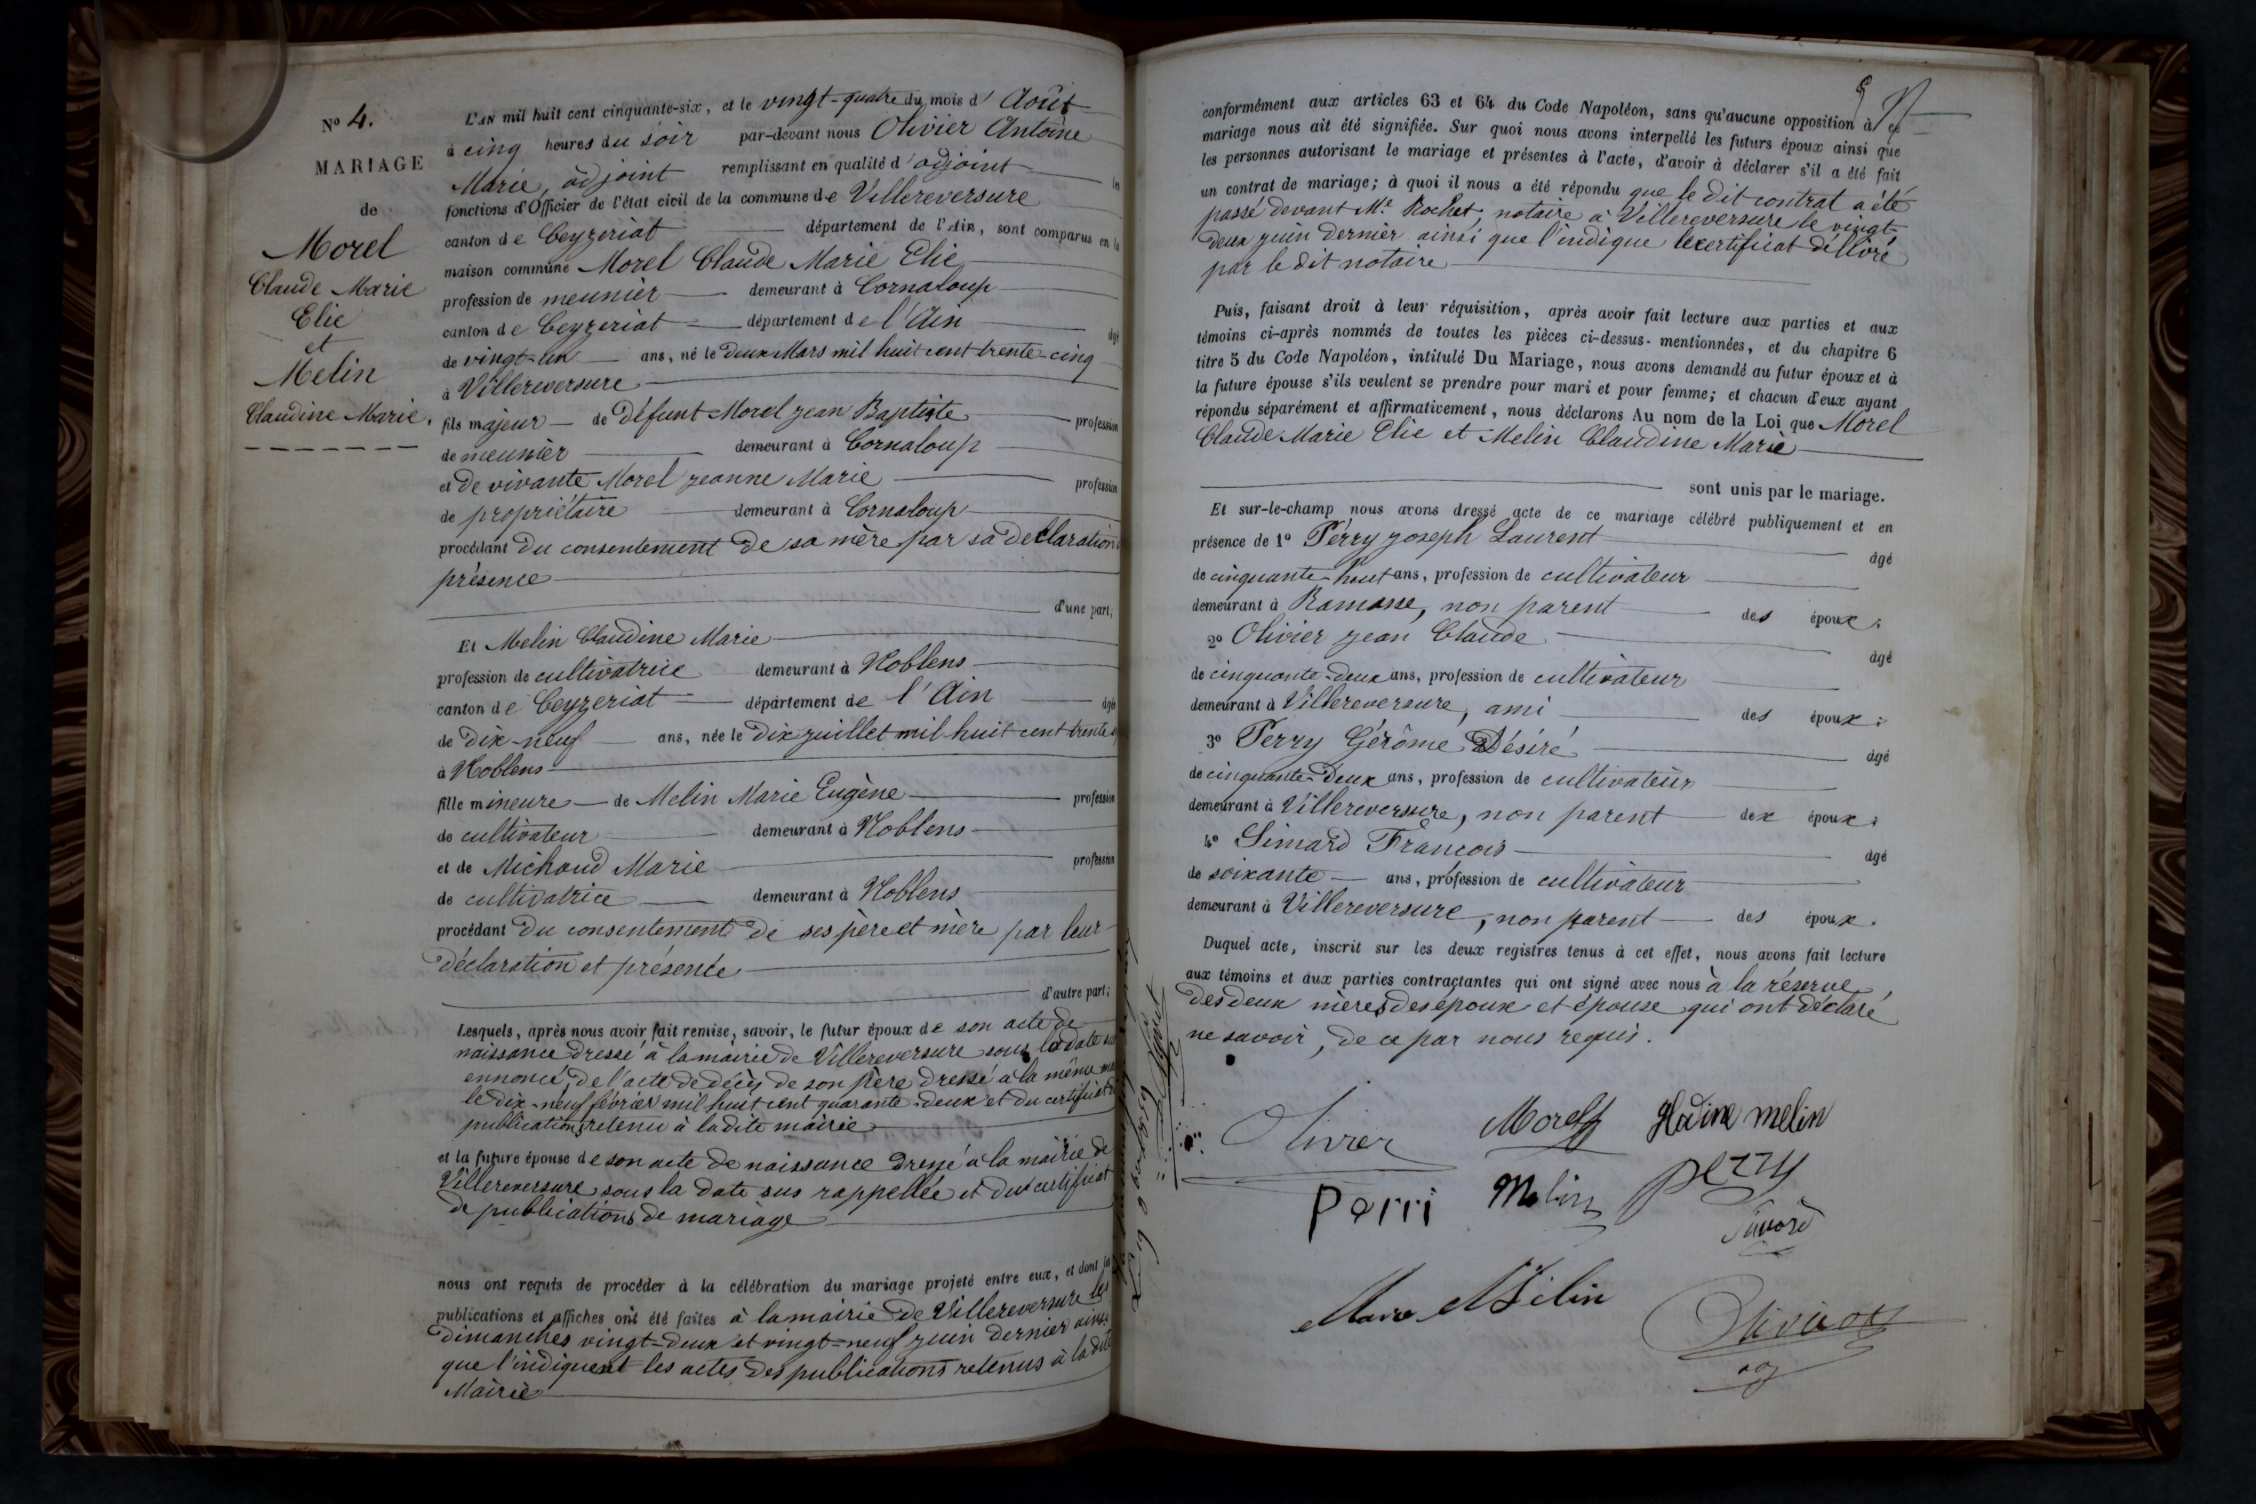 N° 4.
MARIAGE
de
Morel
Claude Marie
Elie
et
Melin
Claudine Marie.
L'AN mil huit cent cinquante-six, et le vingt-quatre du mois d' Août
à cinq heures du soir par-devant nous Olivier Antoine
Marie, adjoint remplissant en qualité d' adjoint les
fonctions d'Officier de l'état civil de la commune de Villereversure
canton de Ceyzeriat département de l'Ain, sont comparus en la
maison commune Morel Claude Marie Elie
profession de meunier demeurant à Cornaloup
canton de Ceyzeriat département de l'Ain âgé
de vingt-un ans, né le deux Mars mil huit cent trente-cinq
à Villereversure
fils majeur de défunt Morel jean Baptiste profession
de meunier demeurant à Cornaloup
et de vivante Morel jeanne Marie profession
de propriétaire demeurant à Cornaloup
procédant du consentement de sa mère par sa déclaration
présence
d'une part;
Et Melin Claudine Marie
profession de cultivatrice demeurant à Noblens
canton de Ceyzeriat département de l'Ain âgée
de dix-neuf ans, née le dix juillet mil huit cent trente
à Noblens
fille mineure de Melin Marie Eugène profession
de cultivateur demeurant à Noblens
et de Michaud Marie profession
de cultivatrice demeurant à Noblens
procédant du consentement de ses père et mère par leur
déclaration et présence
d'autre part;
Lesquels, après nous avoir fait remise, savoir, le futur époux de son acte de
naissance dressé à la mairie de Villereversure sous la date
ennoncé, de l'acte de décès de son père dressé à la même
le dix-neuf février mil huit cent quarante-deux et du certificat
publications retenu à la dite mairie
et la future épouse de son acte de naissance dressé à la mairie de
Villereversure sous la date sus rappellée et du certificat
de publications de mariage
nous ont requis de procéder à la célébration du mariage projeté entre eux, et dont les
publications et affiches ont été faites à la mairie de Villereversure les
dimanches vingt-deux et vingt-neuf juin dernier ainsi
que l'indiquent les actes des publications retenus à la dite
Mairie
conformément aux articles 63 et 64 du Code Napoléon, sans qu'aucune opposition à ce
mariage nous ait été signifiée. Sur quoi nous avons interpellé les futurs époux ainsi que
les personnes autorisant le mariage et présentes à l'acte, d'avoir à déclarer s'il a été fait
un contrat de mariage; à quoi il nous a été répondu que le dit contrat a été
passé devant Me Rochet, notaire à Villereversure le vingt-
deux juin dernier ainsi que l'indique le certificat délivré
par le dit notaire
Puis, faisant droit à leur réquisition, après avoir fait lecture aux parties et aux
témoins ci-après nommés de toutes les pièces ci-dessus-mentionnées, et du chapitre 6
titre 5 du Code Napoléon, intitulé Du Mariage, nous avons demandé au futur époux et à
la future épouse s'ils veulent se prendre pour mari et pour femme; et chacun d'eux ayant
répondu séparément et affirmativement, nous déclarons Au nom de la Loi que Morel
Claude Marie Elie et Melin Claudine Marie
sont unis par le mariage.
Et sur-le-champ nous avons dressé acte de ce mariage célébré publiquement et en
présence de 1° Perry joseph Laurent âgé
de cinquante-huit ans, profession de cultivateur
demeurant à Ramasse, non parent des époux;
2° Olivier jean Claude âgé
de cinquante-deux ans, profession de cultivateur
demeurant à Villereversure, ami des époux;
3° Perry Gérôme Désiré âgé
de cinquante-deux ans, profession de cultivateur
demeurant à Villereversure, non parent des époux;
4° Simard François âgé
de soixante ans, profession de cultivateur
demeurant à Villereversure, non parent des époux.
Duquel acte, inscrit sur les deux registres tenus à cet effet, nous avons fait lecture
aux témoins et aux parties contractantes qui ont signé avec nous à la réserve
des deux mères des époux et épouse qui ont déclaré
ne savoir, de ce par nous requis.
Olivier Morel Claudine melin
Perri Melin perry
Marie Mélin
Olivier
adj